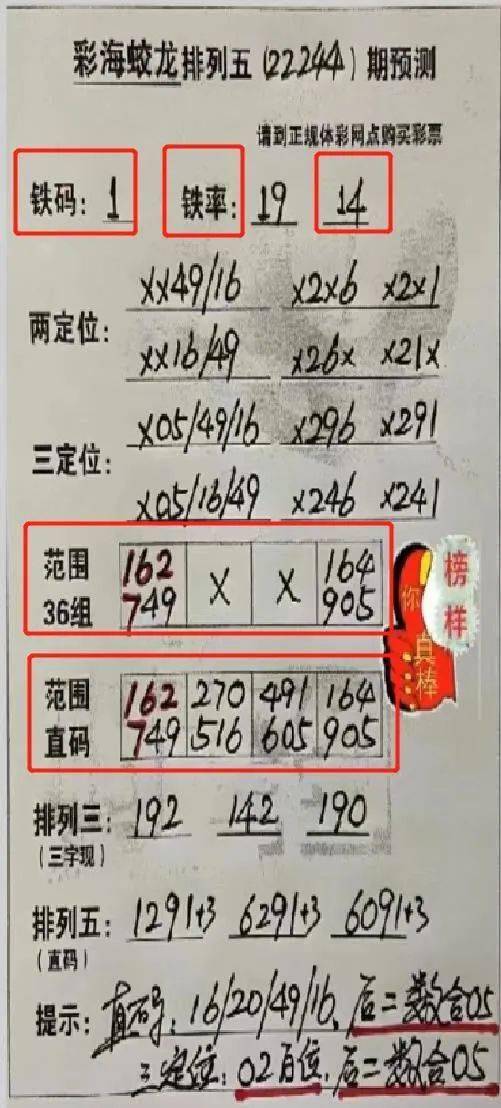 彩海蛟龙排列五(22244)期预测
请到正规体彩网点购买彩票
铁码: 1 铁率: 19 14
两定位:
xx49/16 x2x6 x2x1
xx16/49 x26x x21x
三定位:
x05/49/16 x296 x291
x05/16/49 x246 x241
范围 162 X X 164
36组 749 905
范围 162 270 491 164
直码 749 516 605 905
你真棒
榜样
排列三: 192 142 190
(三字现)
排列五: 1291+3 6291+3 6091+3
(直码)
提示: 直码: 16/20/49/16、后二数合05
三定位: 02百位、后二数合05